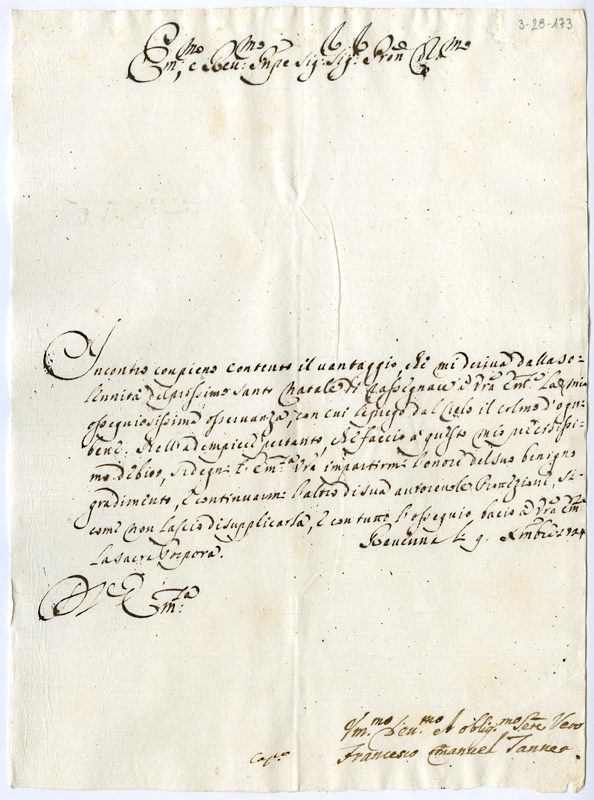 3-28-173
Em:mo, e Rev:mo Pnpe Sig: Sig: Pron Colmo
Incontro con pieno contento il vantaggio, che mi deriva dalla so-
lennità del prossimo Santo Natale di rassegnare à Vra Em:za la mia
ossequiosissima osservanza, con cui le prego dal Cielo il colmo d'ogni
bene. Nell'adempire pertanto, che faccio à questo mio precisissi-
mo debito, si degni l'Em:za Vra impartirmi l'onore del suo benigno
gradimento, e continuarmi l'altro di sua autorevole Protezione, si
come non lascio di supplicarla, e con tutto l'ossequio bacio à Vra Em:za
la sacra Porpora. Ravenna li 9. Xmbre
D V Em:za
Vm:mo Deu:mo et oblig:mo Serre Vero
Francesco Emanuel